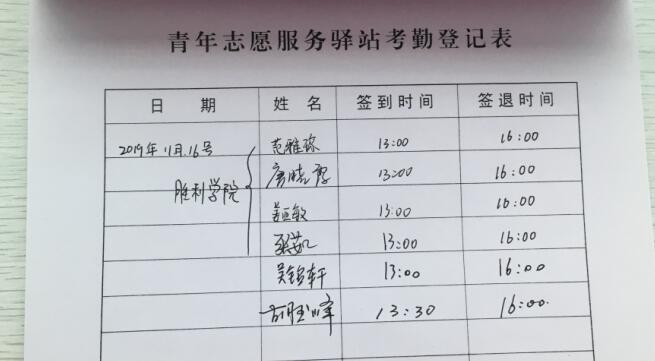 青年志愿服务驿站考勤登记表
日 期 姓 名 签到时间 签退时间
2019年11月16号 范雅琼 13:00 16:00
胜利学院 唐晓霞 13:00 16:00
敏 13:00 16:00
13:00 16:00
吴铭轩 13:00 16:00
峰 13:30 16:00